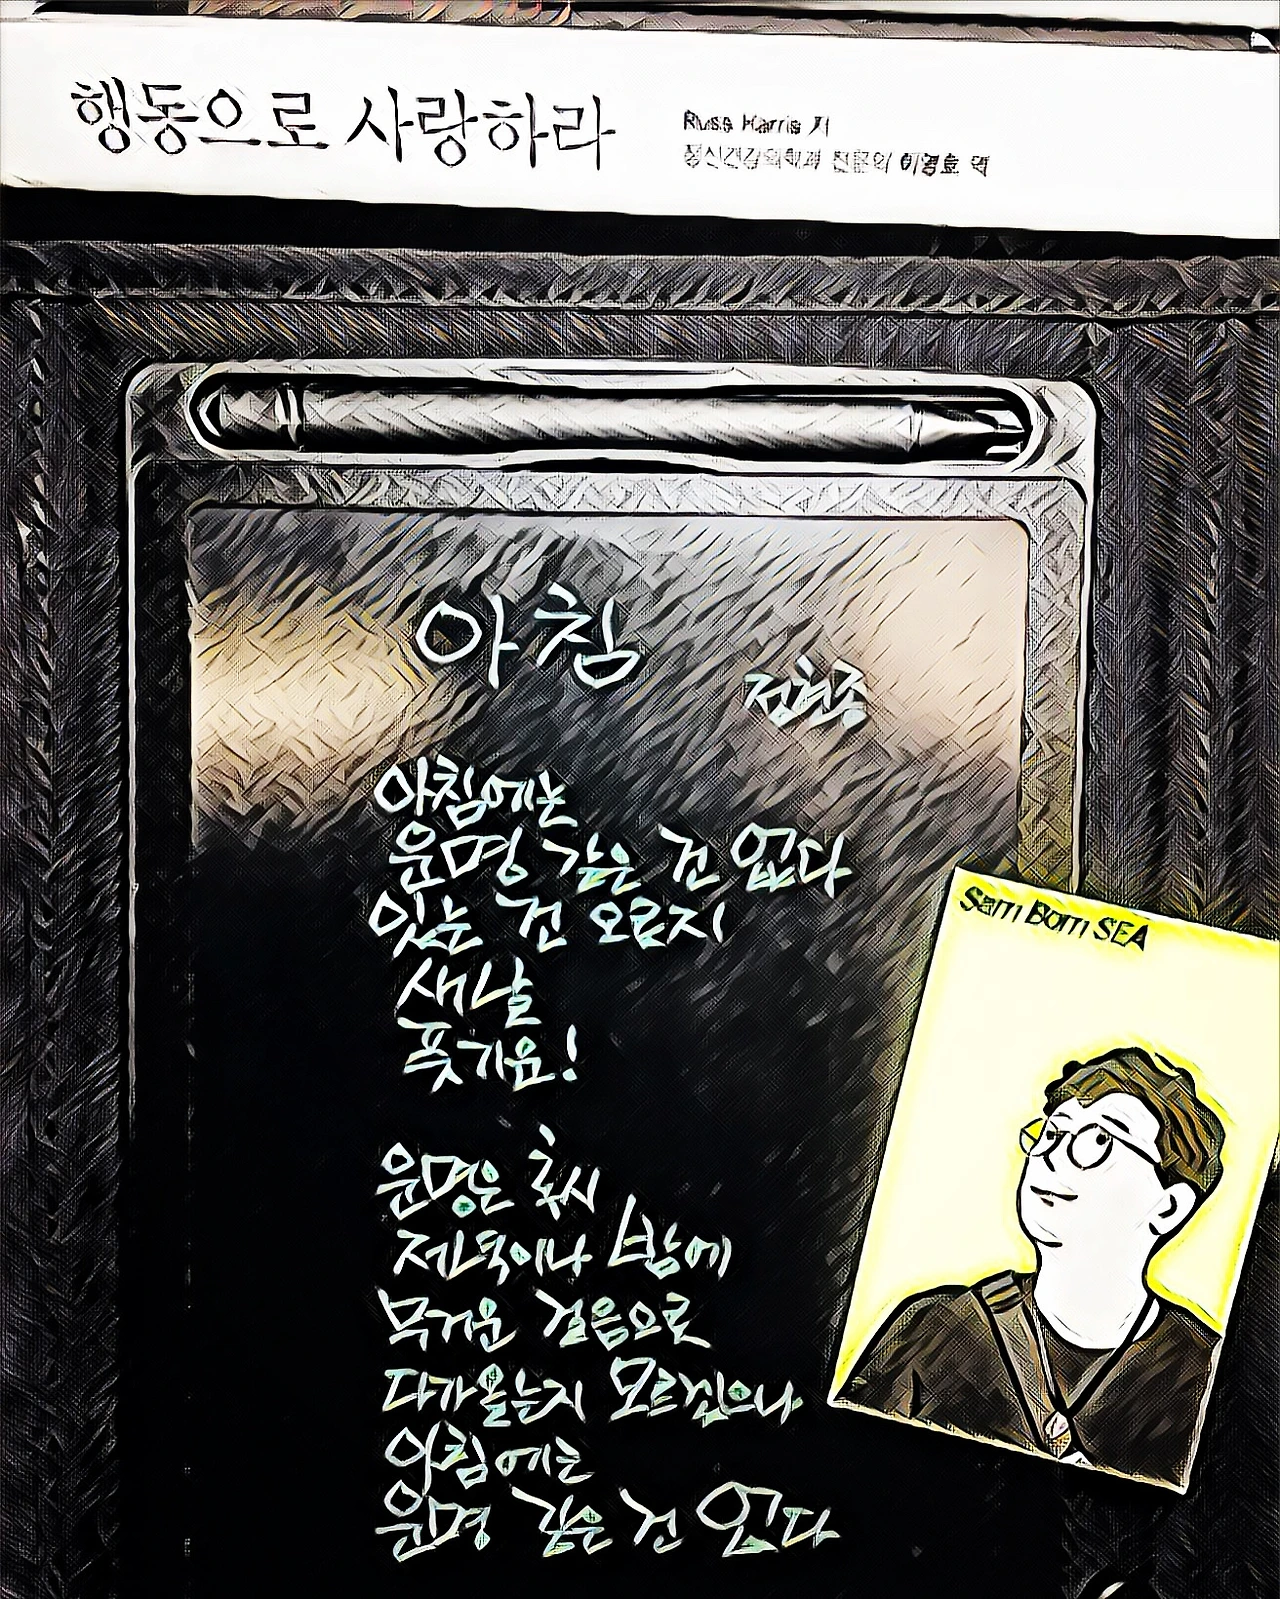 행동으로 사랑하라
Russ Harris 저
정신건강의학과 전문의 이경호 역
아침
정현종
아침에는
운명 같은 건 없다
있는 건 오로지
새날
풋기운!
운명은 혹시
저녁이나 밤에
무거운 걸음으로
다가올는지 모르겠으나
아침에는
운명 같은 건 없다
Sam Bom SEA